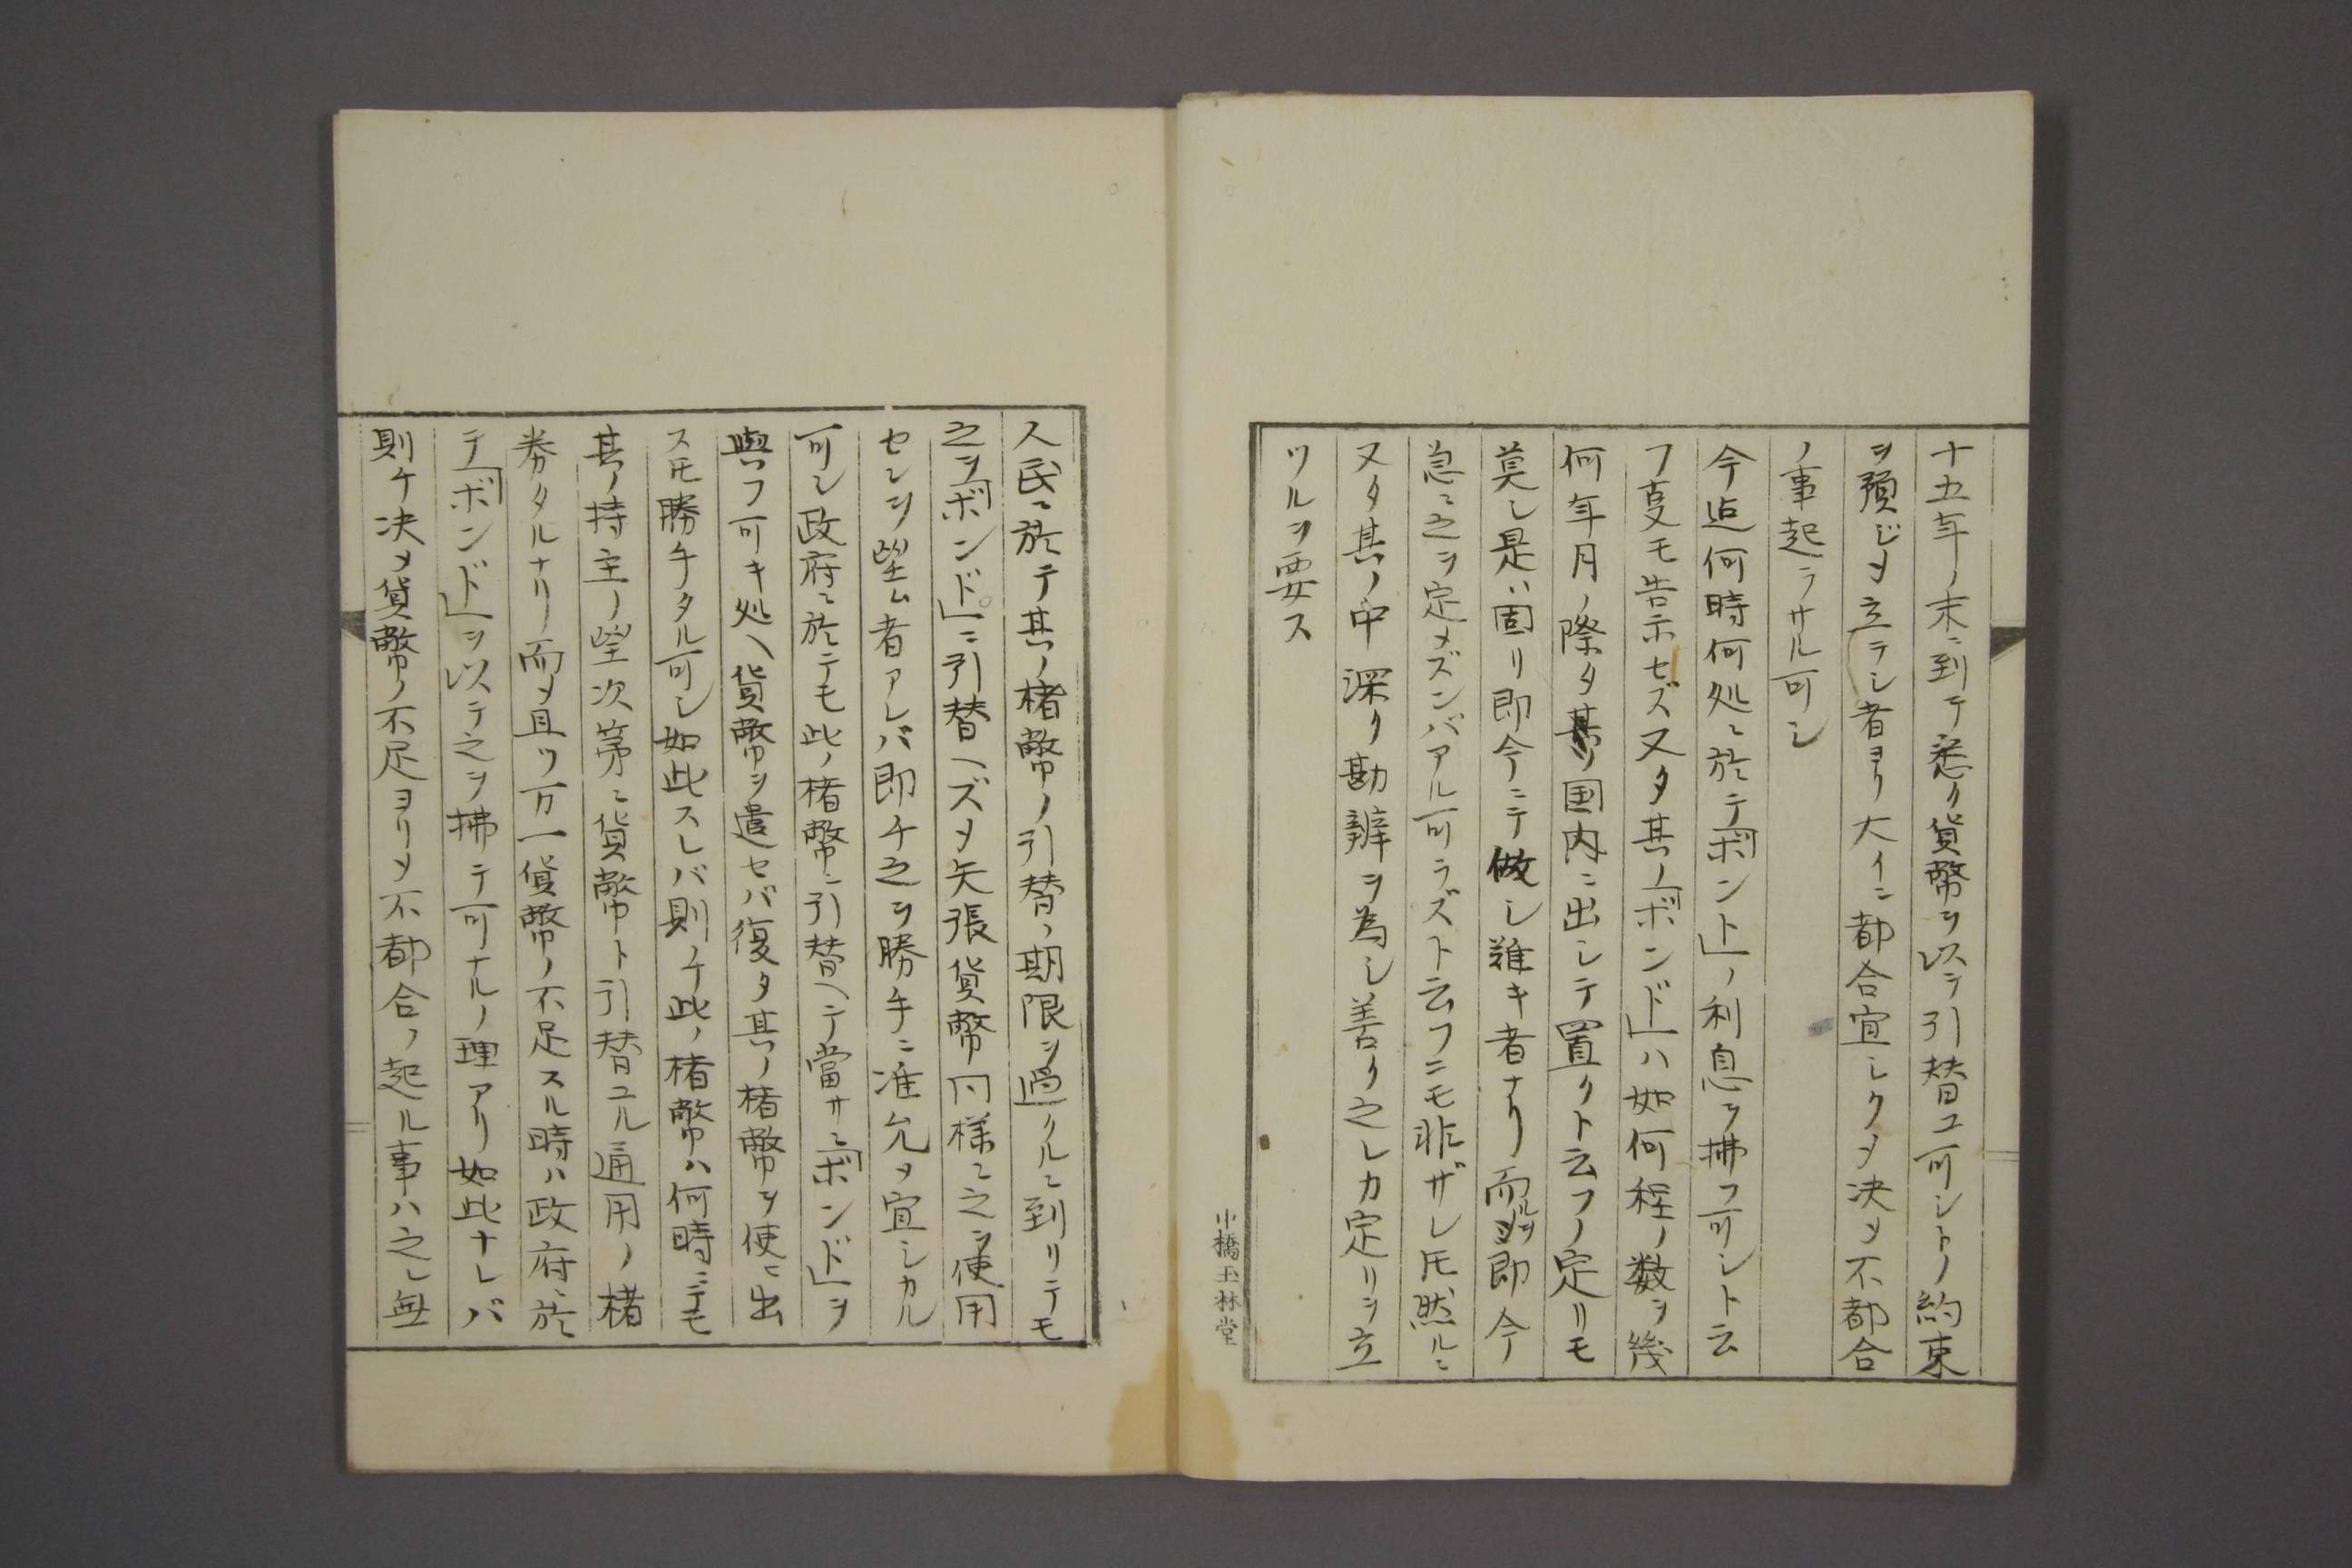 十五年ノ末ニ到テ悉ク貨幣ヲ以テ引替ユ可シトノ約束
ヲ預ジメ立テシ者ヨリ大イニ都合宜シクメ决メ不都合
ノ事起ラサル可シ
今迠何時何処ニ於テ「ボント」ノ利息ヲ拂フ可シト云
フ亥モ告示セズ又タ其ノ「ボンド」ハ如何程ノ数ヲ幾
何年月ノ際タ其ノ国内ニ出シテ置クト云フノ定リモ
莫シ是ハ固リ即今ニテ做シ難キ者ナリ而ルヲ即今
急ニ之ヲ定メズンバアル可ラズト云フニモ非ザレ𪜈然ルニ
又タ其ノ中深ク勘辨ヲ為シ善ク之レカ定リヲ立
ツルヲ要ス
小橋玉林堂
人民ニ於テ其ノ楮幣ノ引替ノ期限ヲ過クルニ到リテモ
之ヲ「ボンド」ニ引替ヘズメ矢張貨幣同様ニ之ヲ使用
センヿ望ム者アレバ即チ之ヲ勝手ニ准允メ宜シカル
可シ政府ニ於テモ此ノ楮幣ニ引替ヘテ當サニ「ボンド」ヲ
與フ可キ処ヘ貨幣ヲ遣セバ復タ其ノ楮幣ヲ使ニ出
ス𪜈勝手タル可シ如此スレバ則ノチ此ノ楮幣ハ何時ニテモ
其ノ持主ノ望次第ニ貨幣ト引替ユル通用ノ楮
券タルナリ而メ且ツ万一貨幣ノ不足スル時ハ政府ニ於
テ「ボンド」ヲ以テ之ヲ拂テ可ナルノ理アリ如此ナレバ
則チ决メ貨幣ノ不足ヨリメ不都合ノ起ル事ハ之レ無